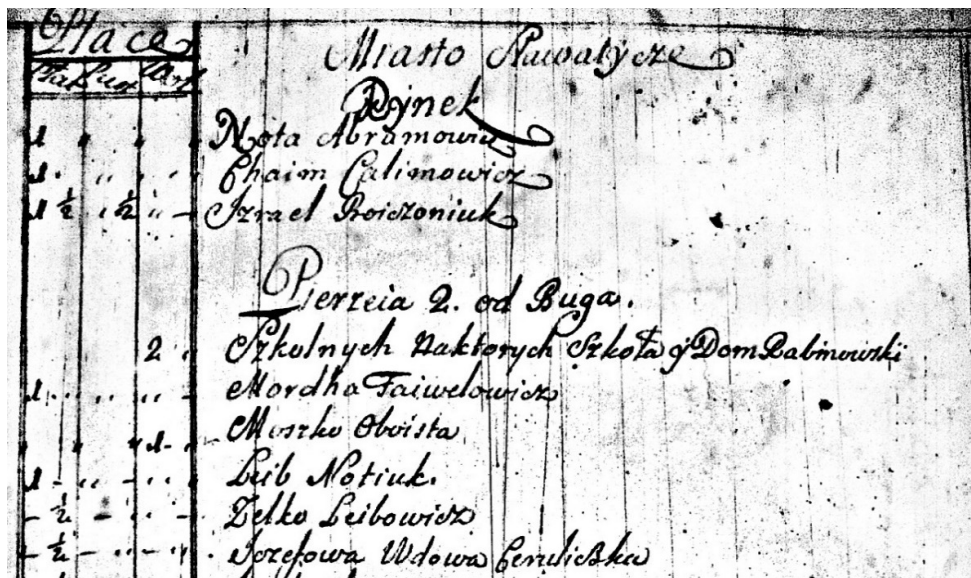 Place
Miasto Sławatycze
Rynek
1 " " " " Nota Abramowicz
1 " " " " Chaim Calimowicz
1 ½ " ½ " – Izrael Broiczoniuk
Pierzeia 2. od Buga.
2 " Szkolnych Naktorych Szkoła y Dom Rabinowski
1 " " " " – Mordha Faiwelowicz
" " 1 - " - Moszko Oboista
1 - " - " " - Leib Notiuk.
- ½ - " " - Zelko Leibowicz
- ½ - " - " - Jozefowa Wdowa Cerulicżka